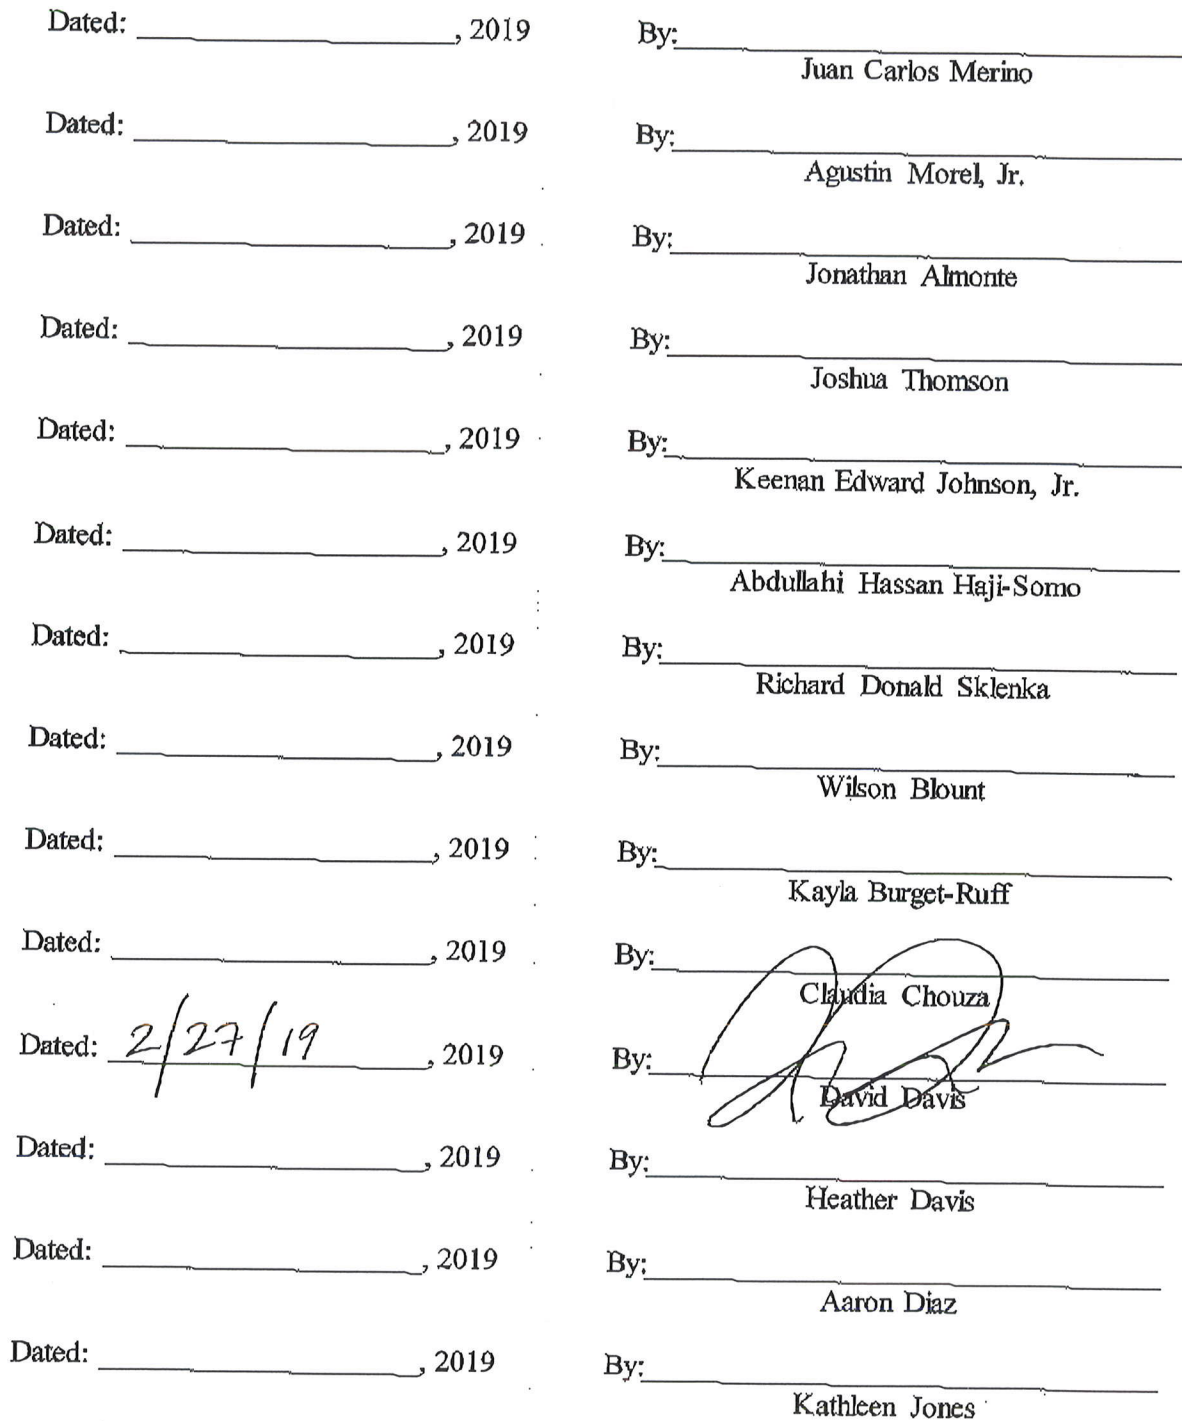 Dated: , 2019 By:
Juan Carlos Merino
Dated: , 2019 By:
Agustin Morel, Jr.
Dated: , 2019 By:
Jonathan Almonte
Dated: , 2019 By:
Joshua Thomson
Dated: , 2019 By:
Keenan Edward Johnson, Jr.
Dated: , 2019 By:
Abdullahi Hassan Haji-Somo
Dated: , 2019 By:
Richard Donald Sklenka
Dated: , 2019 By:
Wilson Blount
Dated: , 2019 By:
Kayla Burget-Ruff
Dated: , 2019 By:
Claudia Chouza
Dated: 2/27/19 , 2019 By:
David Davis
Dated: , 2019 By:
Heather Davis
Dated: , 2019 By:
Aaron Diaz
Dated: , 2019 By:
Kathleen Jones